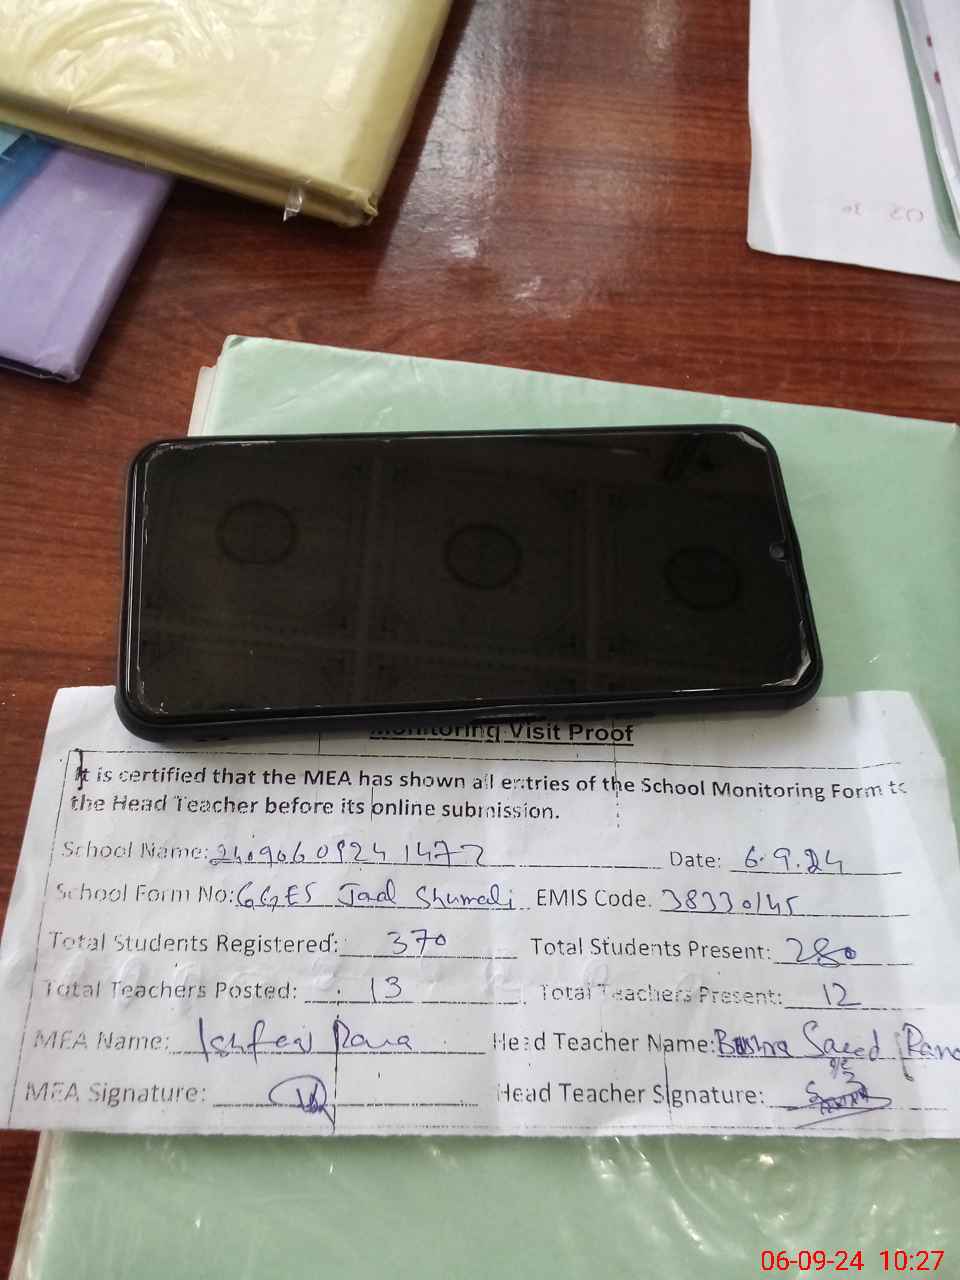 Monitoring Visit Proof
It is certified that the MEA has shown all entries of the School Monitoring Form to
the Head Teacher before its online submission.
School Name: Date: 6.9.24
School Form No: GGES Jaal Shumali EMIS Code. 38330145
Total Students Registered: 370 Total Students Present: 280
Total Teachers Posted: 13 Total Teachers Present: 12
MEA Name: Rana Head Teacher Name: Bushra Saeed Rana
MEA Signature: Head Teacher Signature:
06-09-24 10:27